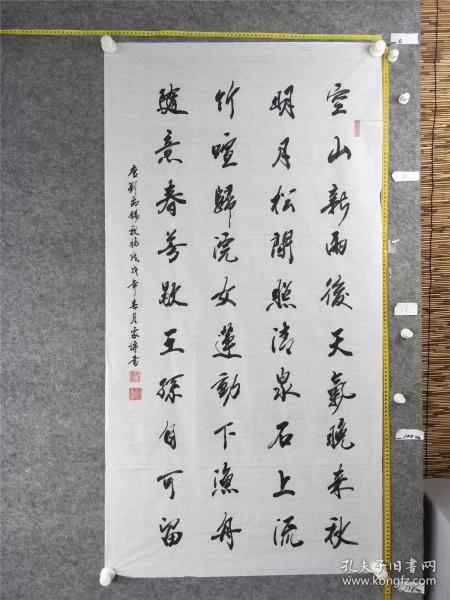 空山新雨後天氣晚来秋
明月松間照清泉石上流
竹喧歸浣女蓮動下漁舟
隨意春芳歇王孫自可留
唐劉禹錫秋詞戊戌年春月家書
孔夫子旧书网
www.kongfz.com